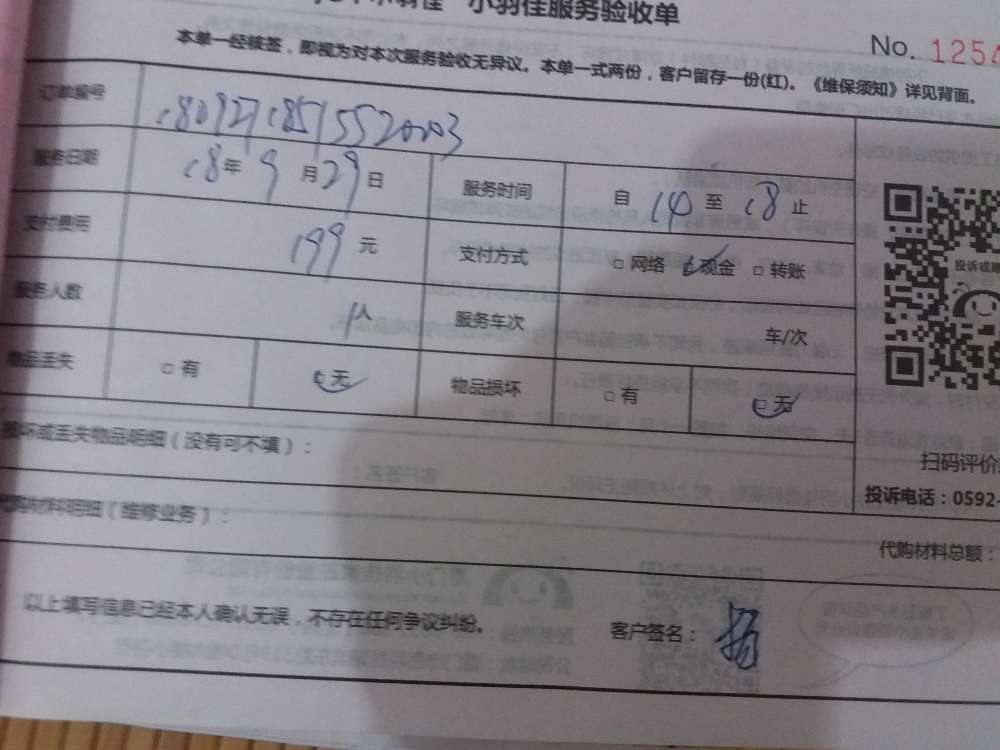 小羽佳服务验收单
No. 1254
本单一经核签，即视为对本次服务验收无异议。本单一式两份，客户留存一份(红)。《维保须知》详见背面。
订单编号 18092718515520003
服务日期 18年9月29日 服务时间 自14至18止
支付费用 199元 支付方式 □网络 □现金 □转账
服务人数 1人 服务车次 车/次
物品丢失 □有 □无 物品损坏 □有 □无
投诉或
扫码评价
投诉电话：0592-
损坏或丢失物品明细（没有可不填）：
代购材料明细（维修业务）：
代购材料总额：
以上填写信息已经本人确认无误，不存在任何争议纠纷。
客户签名：杨